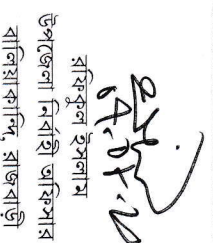 রফিকুল ইসলাম
উপজেলা নির্বাহী অফিসার
বালিয়াকান্দি, রাজবাড়ী